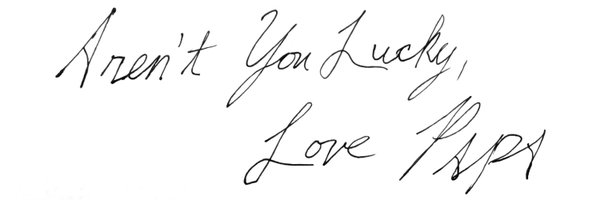 Aren't You Lucky,
Love Paps